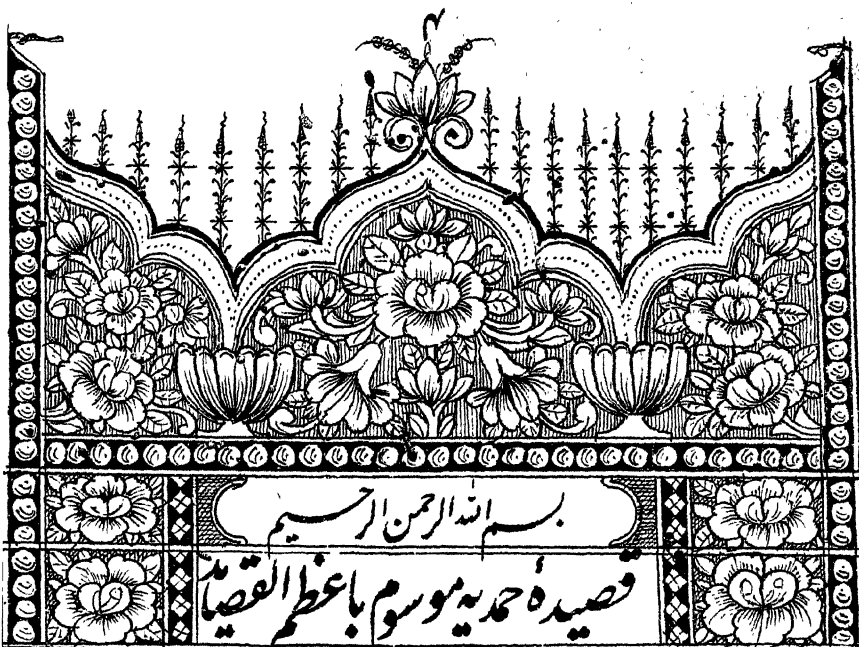 بسم الله الرحمن الرحيم
قصیدۂ حمدیہ موسوم باعظم القصائد